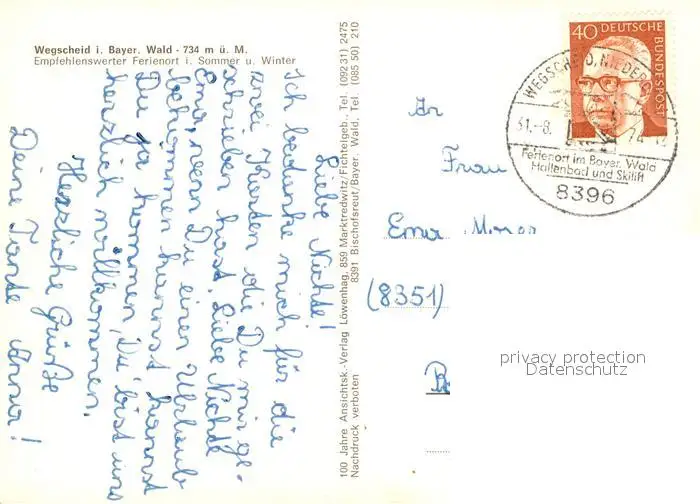 Wegscheid i. Bayer. Wald - 734 m ü. M.
Empfehlenswerter Ferienort i. Sommer u. Winter
Liebe Nichte!
Ich bedanke mich für die
zwei Karten die Du mir ge-
schrieben hast. Liebe Nichte
Erna, wenn Du einen Urlaub
bekommen kannst kannst
Du ja kommen, Du bist uns
herzlich willkommen.
Herzliche Grüße
Deine Tante Anna!
100 Jahre Ansichtsk.-Verlag Löwenhag, 859 Marktredwitz/Fichtelgeb., Tel. (092 31) 2475
8391 Bischofsreut/Bayer. Wald, Tel. (085 50) 210
Nachdruck verboten
40 DEUTSCHE BUNDESPOST
WEGSCHEID, NIEDERB
31.-8. 74-12
Ferienort im Bayer. Wald
Hallenbad und Skilift
8396
An
Frau
Erna
(8351)
privacy protection
Datenschutz